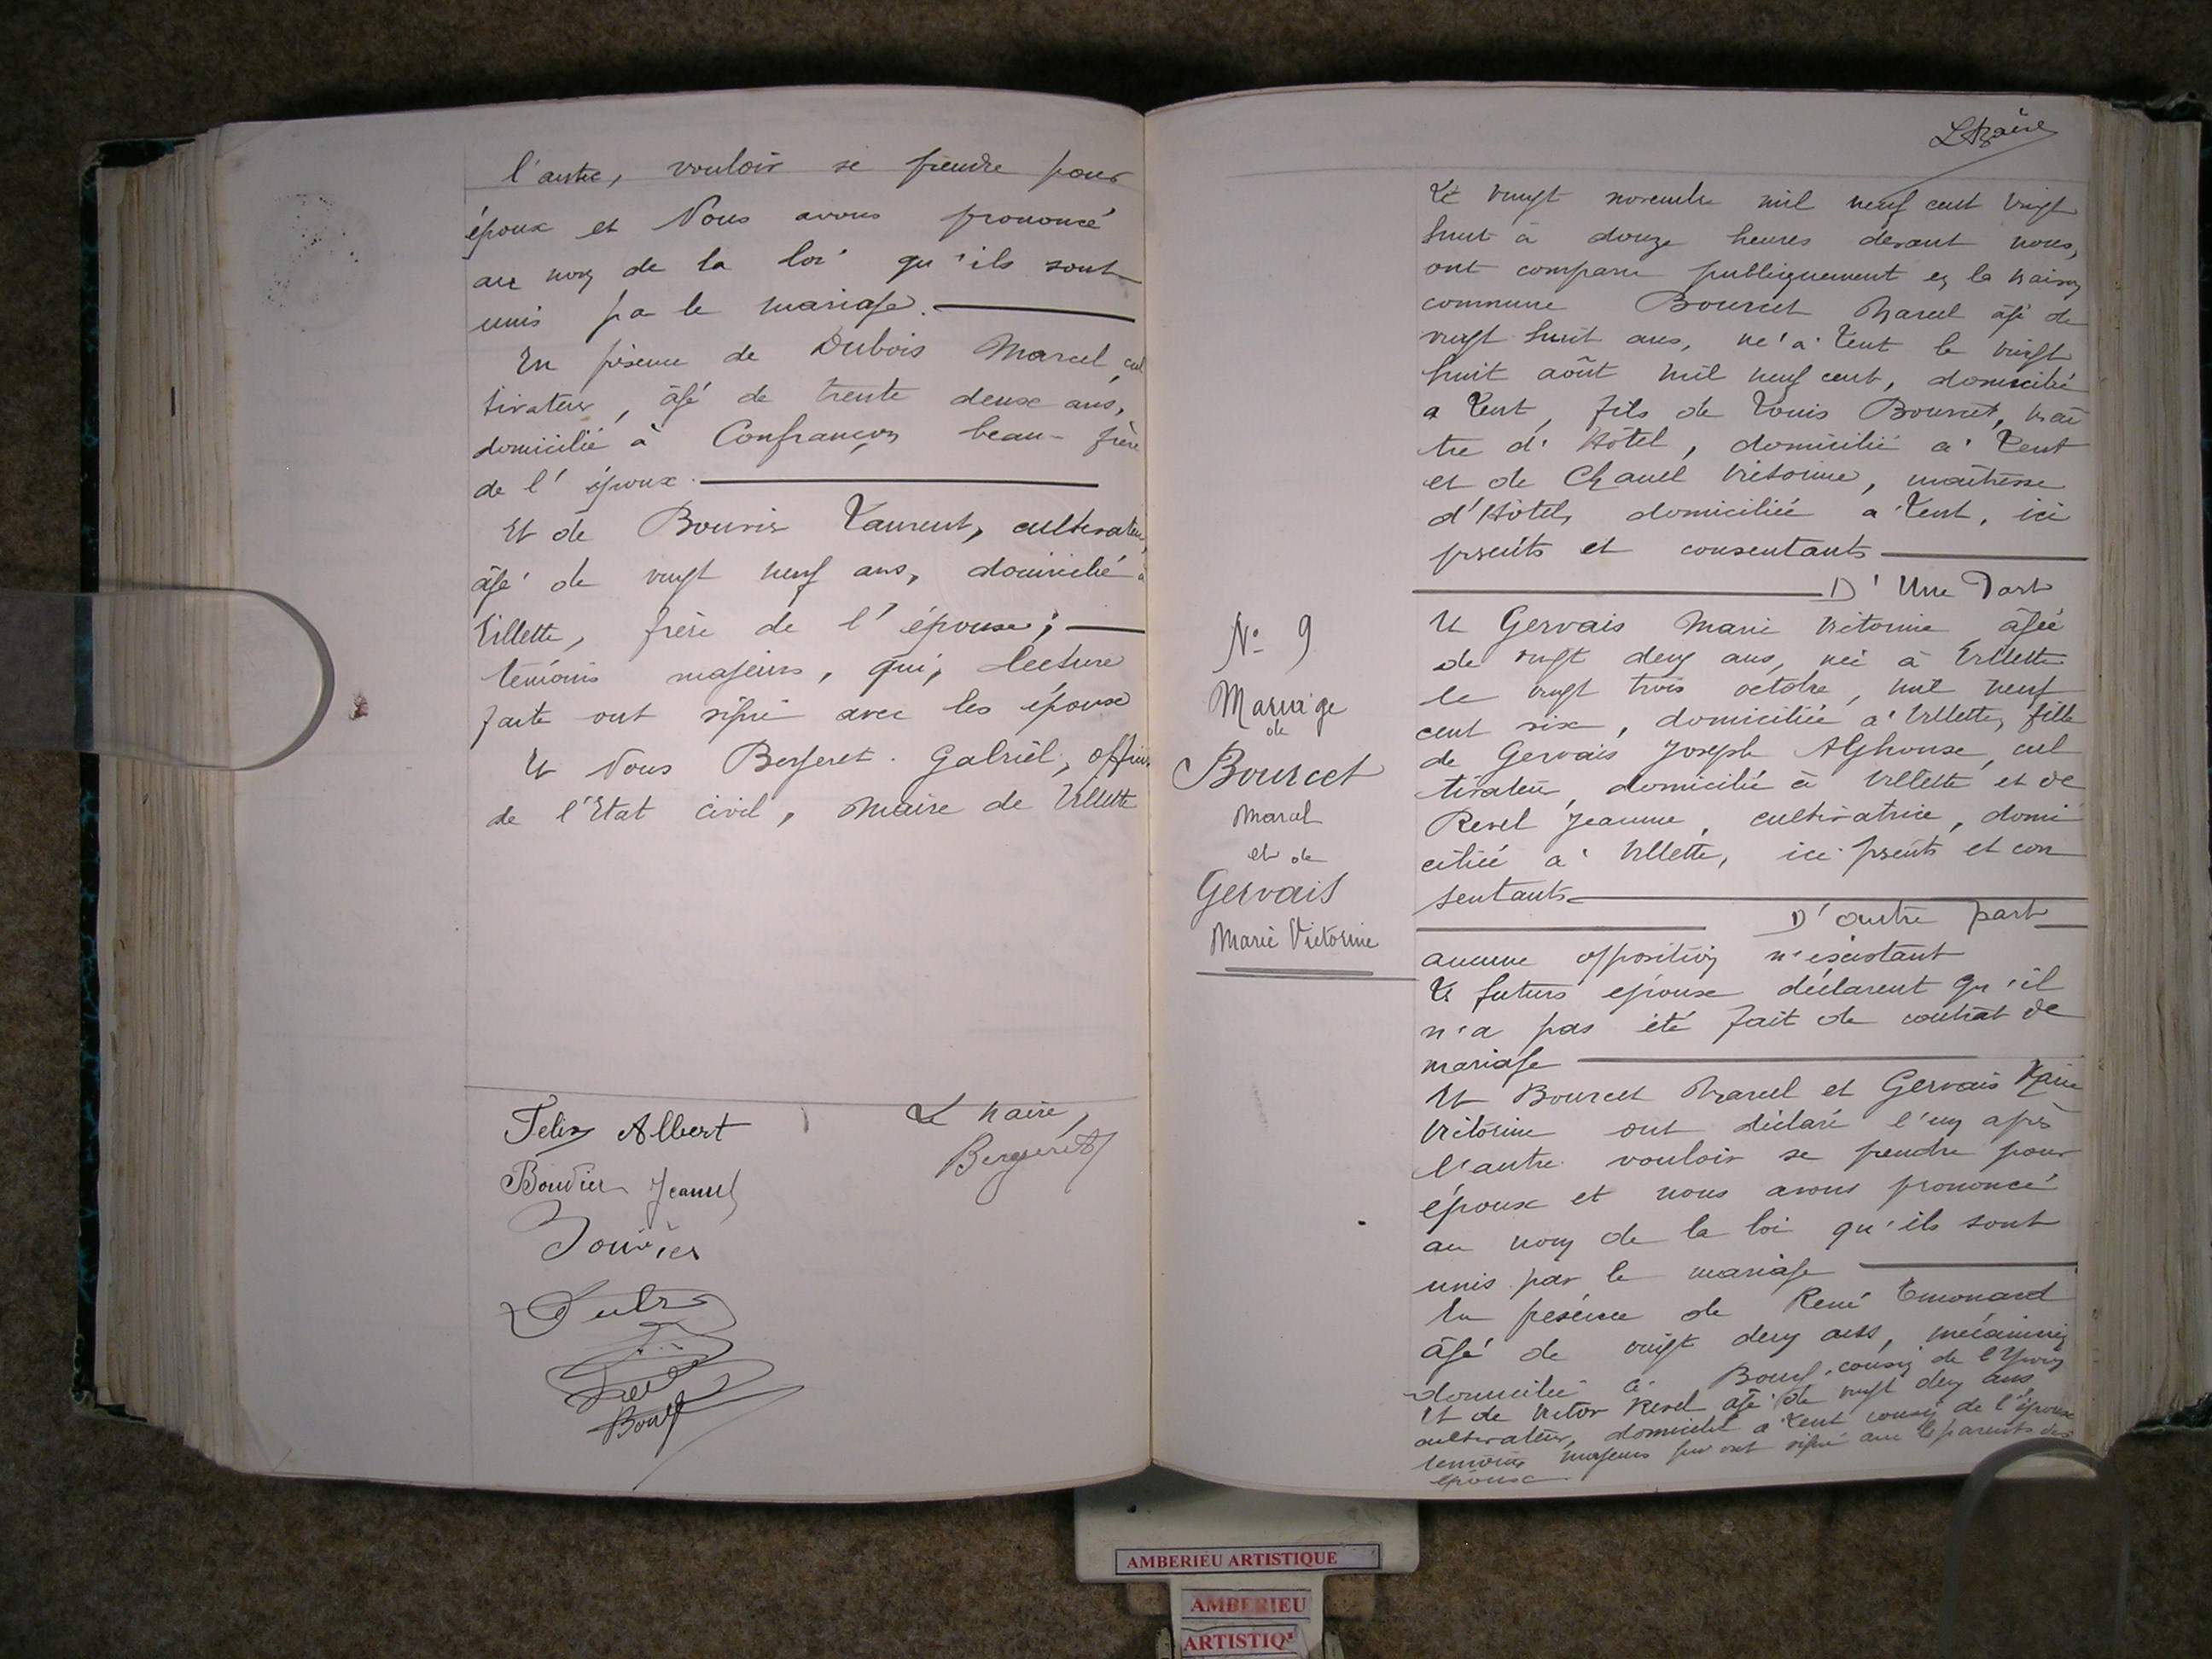 l'autre, vouloir se prendre pour
époux et Nous avons prononcé
au nom de la loi qu'ils sont
unis pa le mariage.
En présence de Dubois Marcel, cul
tivateur, âgé de trente deux ans,
domicilié à Confrançon beau-frère
de l'époux.
Et de Bouvier Laurent, cultivateur,
âgé de vingt neuf ans, domicilié à
Villette, frère de l'épouse;
témoins majeurs, qui, lecture
faite ont signé avec les époux
Et Nous Bergeret Gabriel, officier
de l'Etat civil, Maire de Villette
Felix Albert
Bouvier Jeanne
Bouvier
Le Maire,
Bergeret
Le Maire
N° 9
Mariage
de
Bourcet
Marcel
et de
Gervais
Marie Victorine
Le vingt novembre mil neuf cent vingt
huit à douze heures devant nous,
ont comparu publiquement en la maison
commune Bourcet Marcel âgé de
vingt huit ans, né à Lent le vingt
huit août mil neuf cent, domicilié
a Lent, fils de Louis Bourcet, maî
tre d'Hôtel, domicilié à Lent
et de Chanel Victorine, maîtresse
d'Hôtel, domiciliée a Lent, ici
présents et consentants
D'Une Part
Et Gervais Marie Victorine âgée
de vingt deux ans, née à Villette
le vingt trois octobre, mil neuf
cent six, domiciliée à Villette, fille
de Gervais Joseph Alphonse, cul
tivateur, domicilié à Villette et de
Revel Jeanne, cultivatrice, domi
ciliée à Villette, ici présents et con
sentants
D'autre part
aucune opposition n'existant
Les futurs époux déclarent qu'il
n'a pas été fait de contrat de
mariage
Et Bourcet Marcel et Gervais Marie
Victorine ont déclaré l'un après
l'autre vouloir se prendre pour
époux et nous avons prononcé
au nom de la loi qu'ils sont
unis par le mariage
En présence de René Emonard
âgé de vingt deux ans, mécanicien
domicilié à Bourg, cousin de l'époux
Et de Victor Revel âgé de vingt deux ans,
cultivateur, domicilié a Lent cousin de l'épouse
témoins majeurs qui ont signé avec les parents des
époux
AMBERIEU ARTISTIQUE
AMBERIEU
ARTISTIQ